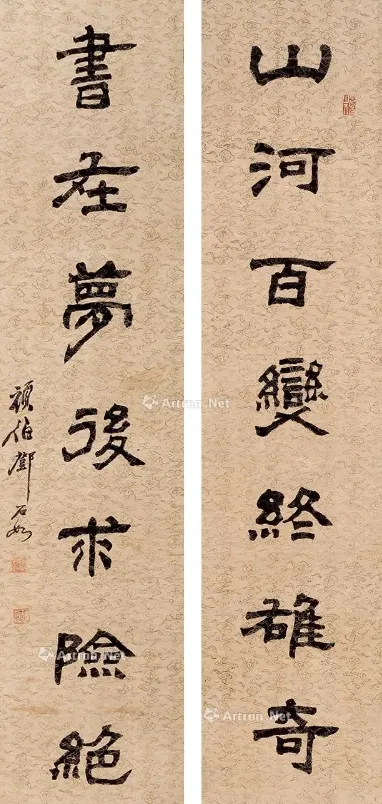 山河百變終雄奇
書在夢後求險絕
頑伯鄧石如
Artron.Net
Artron.Net
Artron.Net
Artron.Net